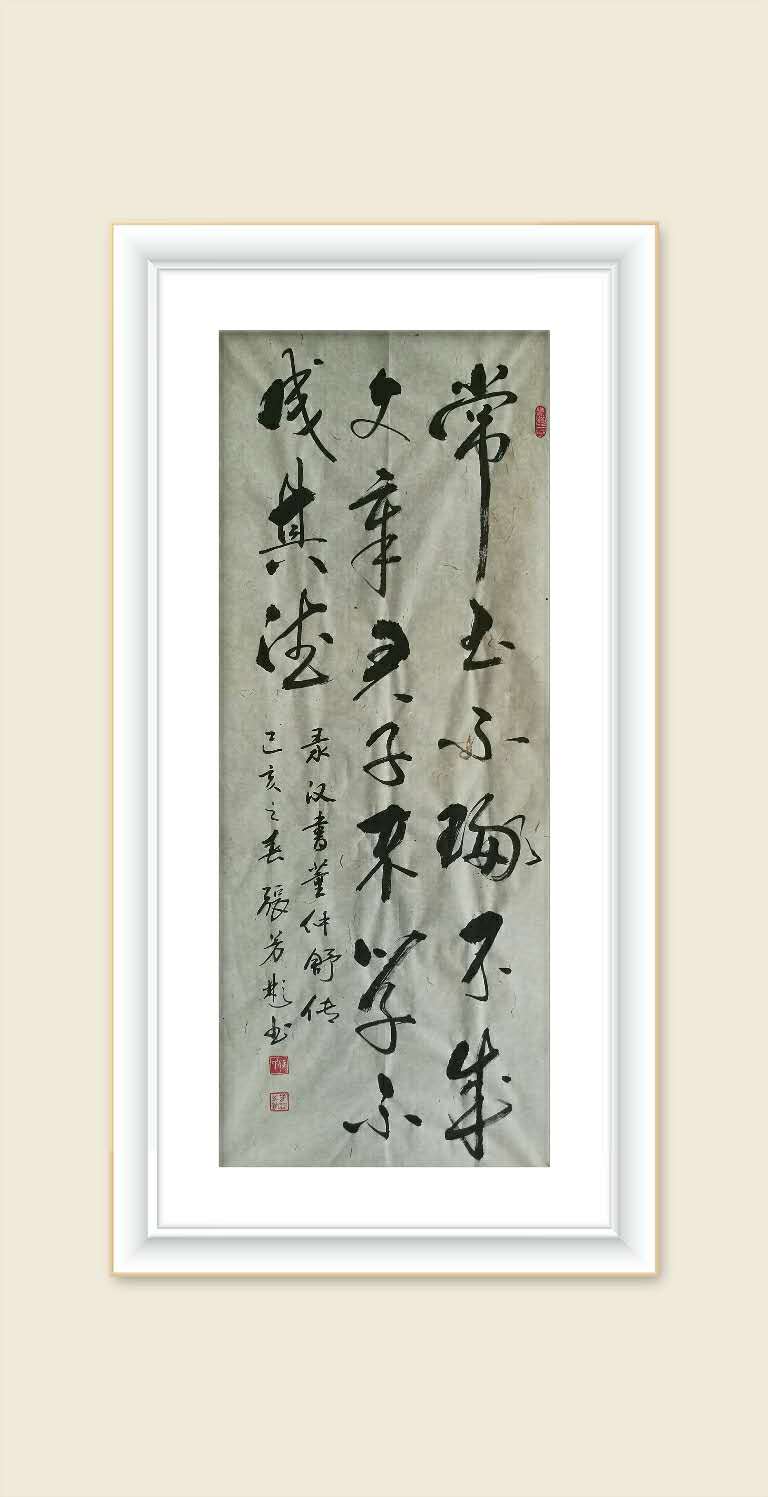 常玉不瑑不成
文章君子不学不
成其德
录汉书董仲舒传
己亥之春 張芳彬书